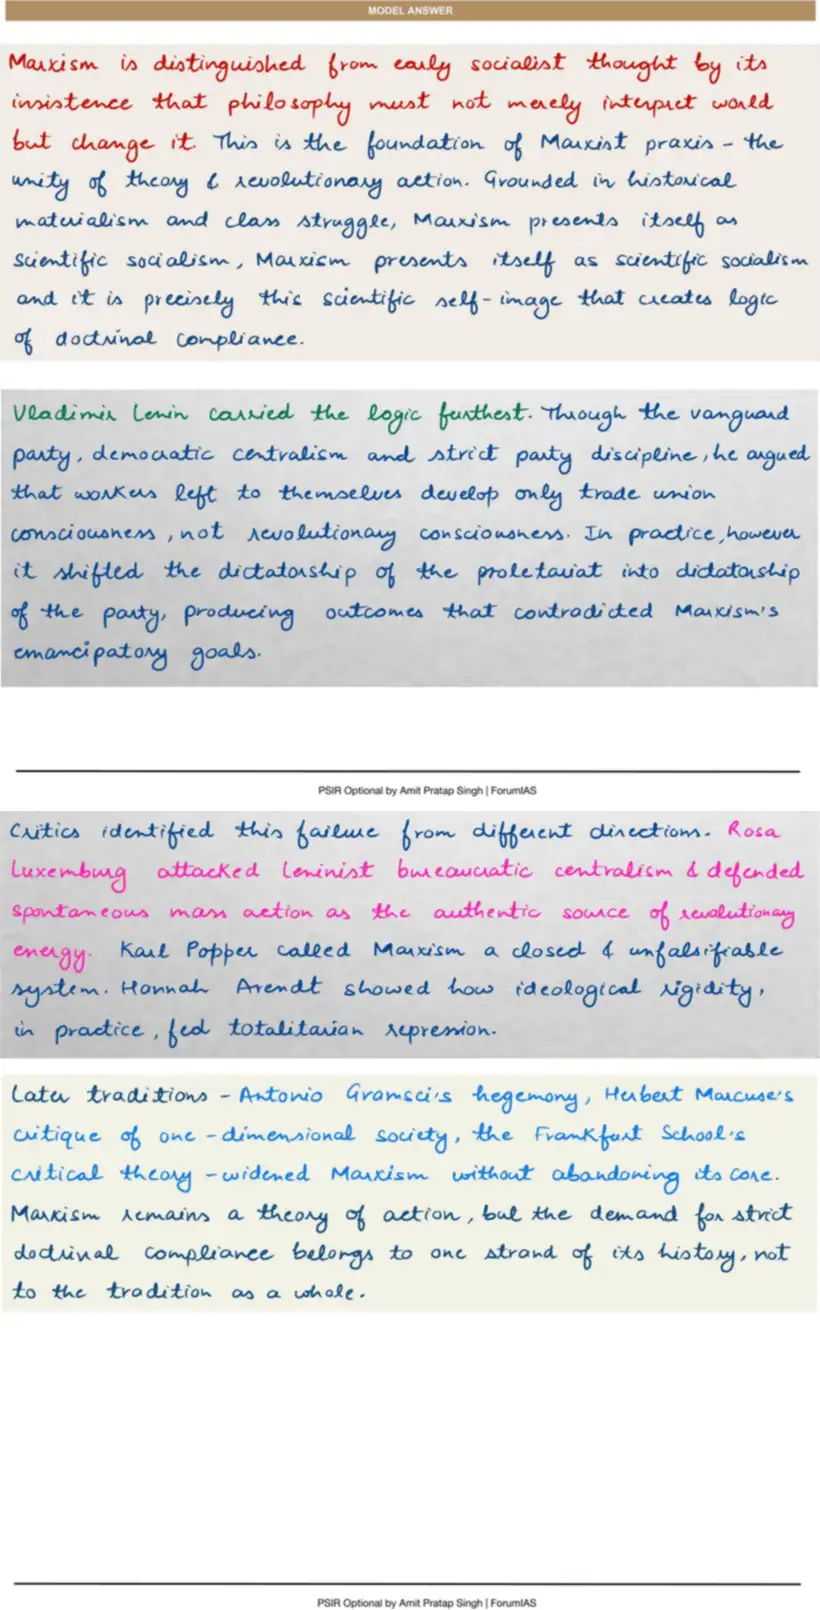 MODEL ANSWER
Marxism is distinguished from early socialist thought by its
insistence that philosophy must not merely interpret world
but change it. This is the foundation of Marxist praxis - the
unity of theory & revolutionary action. Grounded in historical
materialism and class struggle, Marxism presents itself as
scientific socialism, Marxism presents itself as scientific socialism
and it is precisely this scientific self-image that creates logic
of doctrinal compliance.
Vladimir Lenin carried the logic furthest. Through the vanguard
party, democratic centralism and strict party discipline, he argued
that workers left to themselves develop only trade union
consciousness, not revolutionary consciousness. In practice, however
it shifted the dictatorship of the proletariat into dictatorship
of the party, producing outcomes that contradicted Marxism's
emancipatory goals.
PSIR Optional by Amit Pratap Singh | ForumIAS
Critics identified this failure from different directions. Rosa
Luxemburg attacked Leninist bureaucratic centralism & defended
spontaneous mass action as the authentic source of revolutionary
energy. Karl Popper called Marxism a closed & unfalsifiable
system. Hannah Arendt showed how ideological rigidity,
in practice, fed totalitarian repression.
Later traditions - Antonio Gramsci's hegemony, Herbert Marcuse's
critique of one-dimensional society, the Frankfurt School's
critical theory - widened Marxism without abandoning its core.
Marxism remains a theory of action, but the demand for strict
doctrinal compliance belongs to one strand of its history, not
to the tradition as a whole.
PSIR Optional by Amit Pratap Singh | ForumIAS